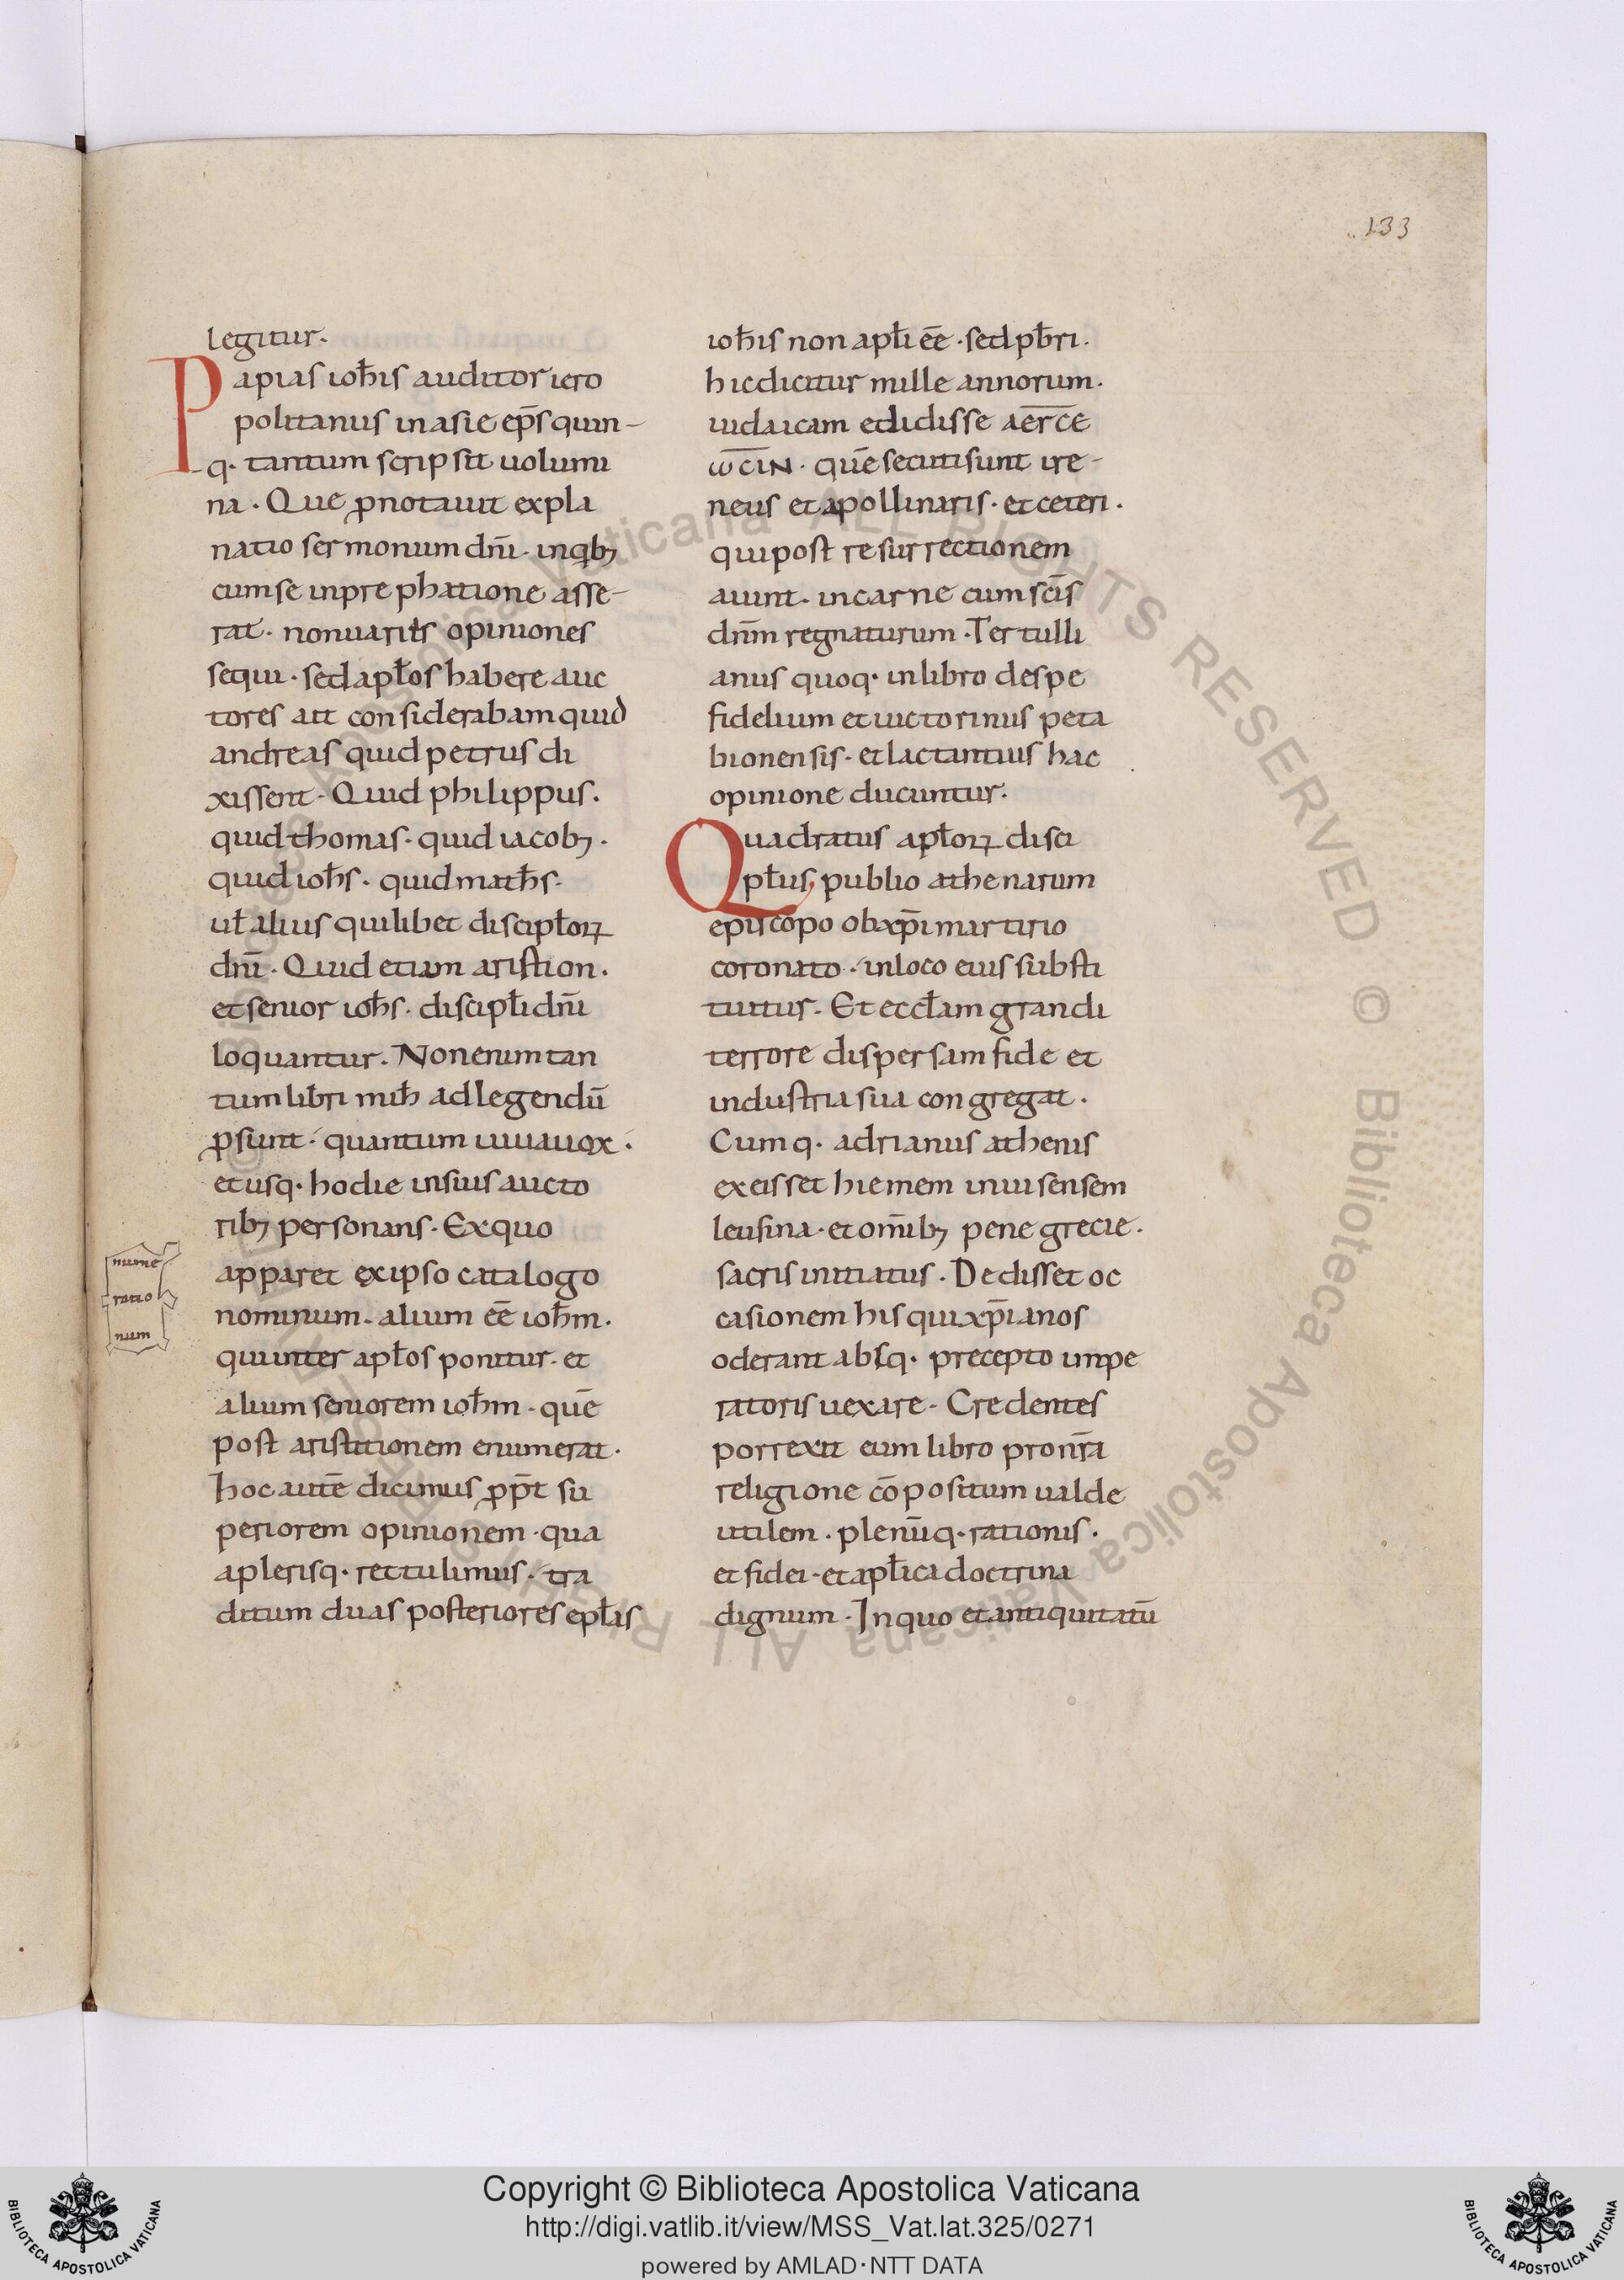 133
legitur.
Papias ioħis auditor iero
politanus in asie ep̄s quin-
q· tantum scripsit uolumi
na · Que ꝓnotauit expla
natio sermonum dn̄i · inqb;
cum se in prephatione asse-
rat · non uariis opiniones
sequi · sed apłos habere auc
tores ait considerabam quid
andreas quid petrus di
xissent · Quid philippus.
quid thomas · quid iacob; ·
quid ioħs · quid matħs ·
uł alius quilibet discipłoꝝ
dn̄i · Quid etiam aristion.
et senior ioħs · discipłi dn̄i
loquantur. Non enim tan
tum libri miħ ad legendū
ꝓsunt · quantum uiua uox ·
et usq· hodie in suis aucto
rib; personans · Ex quo
apparet ex ipso catalogo
nominum · alium eē ioħm ·
qui inter apłos ponitur · et
alium seniorem ioħm · quē
post aristitionem enumerat ·
hoc autē dicimus ꝓp̄t su
periorem opinionem · qua
a plerisq· rettulimus · tra
ditum duas posteriores epłas
nume
ratio
num
ioħis non apłi eē · sed pƀri ·
hic dicitur mille annorum ·
iudaicam edidisse aer̅ce
ω̅cin · quē secuti sunt ire-
neus et apollinaris · et ceteri ·
qui post resurrectionem
aiunt · in carne cum scīs
dnm̄ regnaturum · Tertulli
anus quoq· in libro de spe
fidelium et uictorinus peta
bionensis · et lactantius hac
opinione ducuntur ·
Quadratus apłoꝝ disci
płus publio athenarum
episcopo ob xp̄i martirio
coronato · in loco eius substi
tuitur · Et eccłam grandi
terrore dispersam fide et
industria sua congregat ·
Cum q· adrianus athenis
exeisset hiemem inuisensem
leusina · et om̄ib; pene grecie ·
sacris initiatus · Dedisset oc
casionem his qui xp̄ianos
oderant absq· precepto impe
ratoris uexare · Credentes
porrexit eum libro pro nr̄a
religione cō positum ualde
utilem · plenūq· rationis ·
et fidei · et apłica doctrina
dignum · In quo et antiquitatū
© Biblioteca Apostolica Vaticana ALL RIGHTS RESERVED © Biblioteca Apostolica Vaticana ALL RIGHTS RESERVED
Copyright © Biblioteca Apostolica Vaticana
http://digi.vatlib.it/view/MSS_Vat.lat.325/0271
powered by AMLAD·NTT DATA
BIBLIOTECA APOSTOLICA VATICANA
BIBLIOTECA APOSTOLICA VATICANA